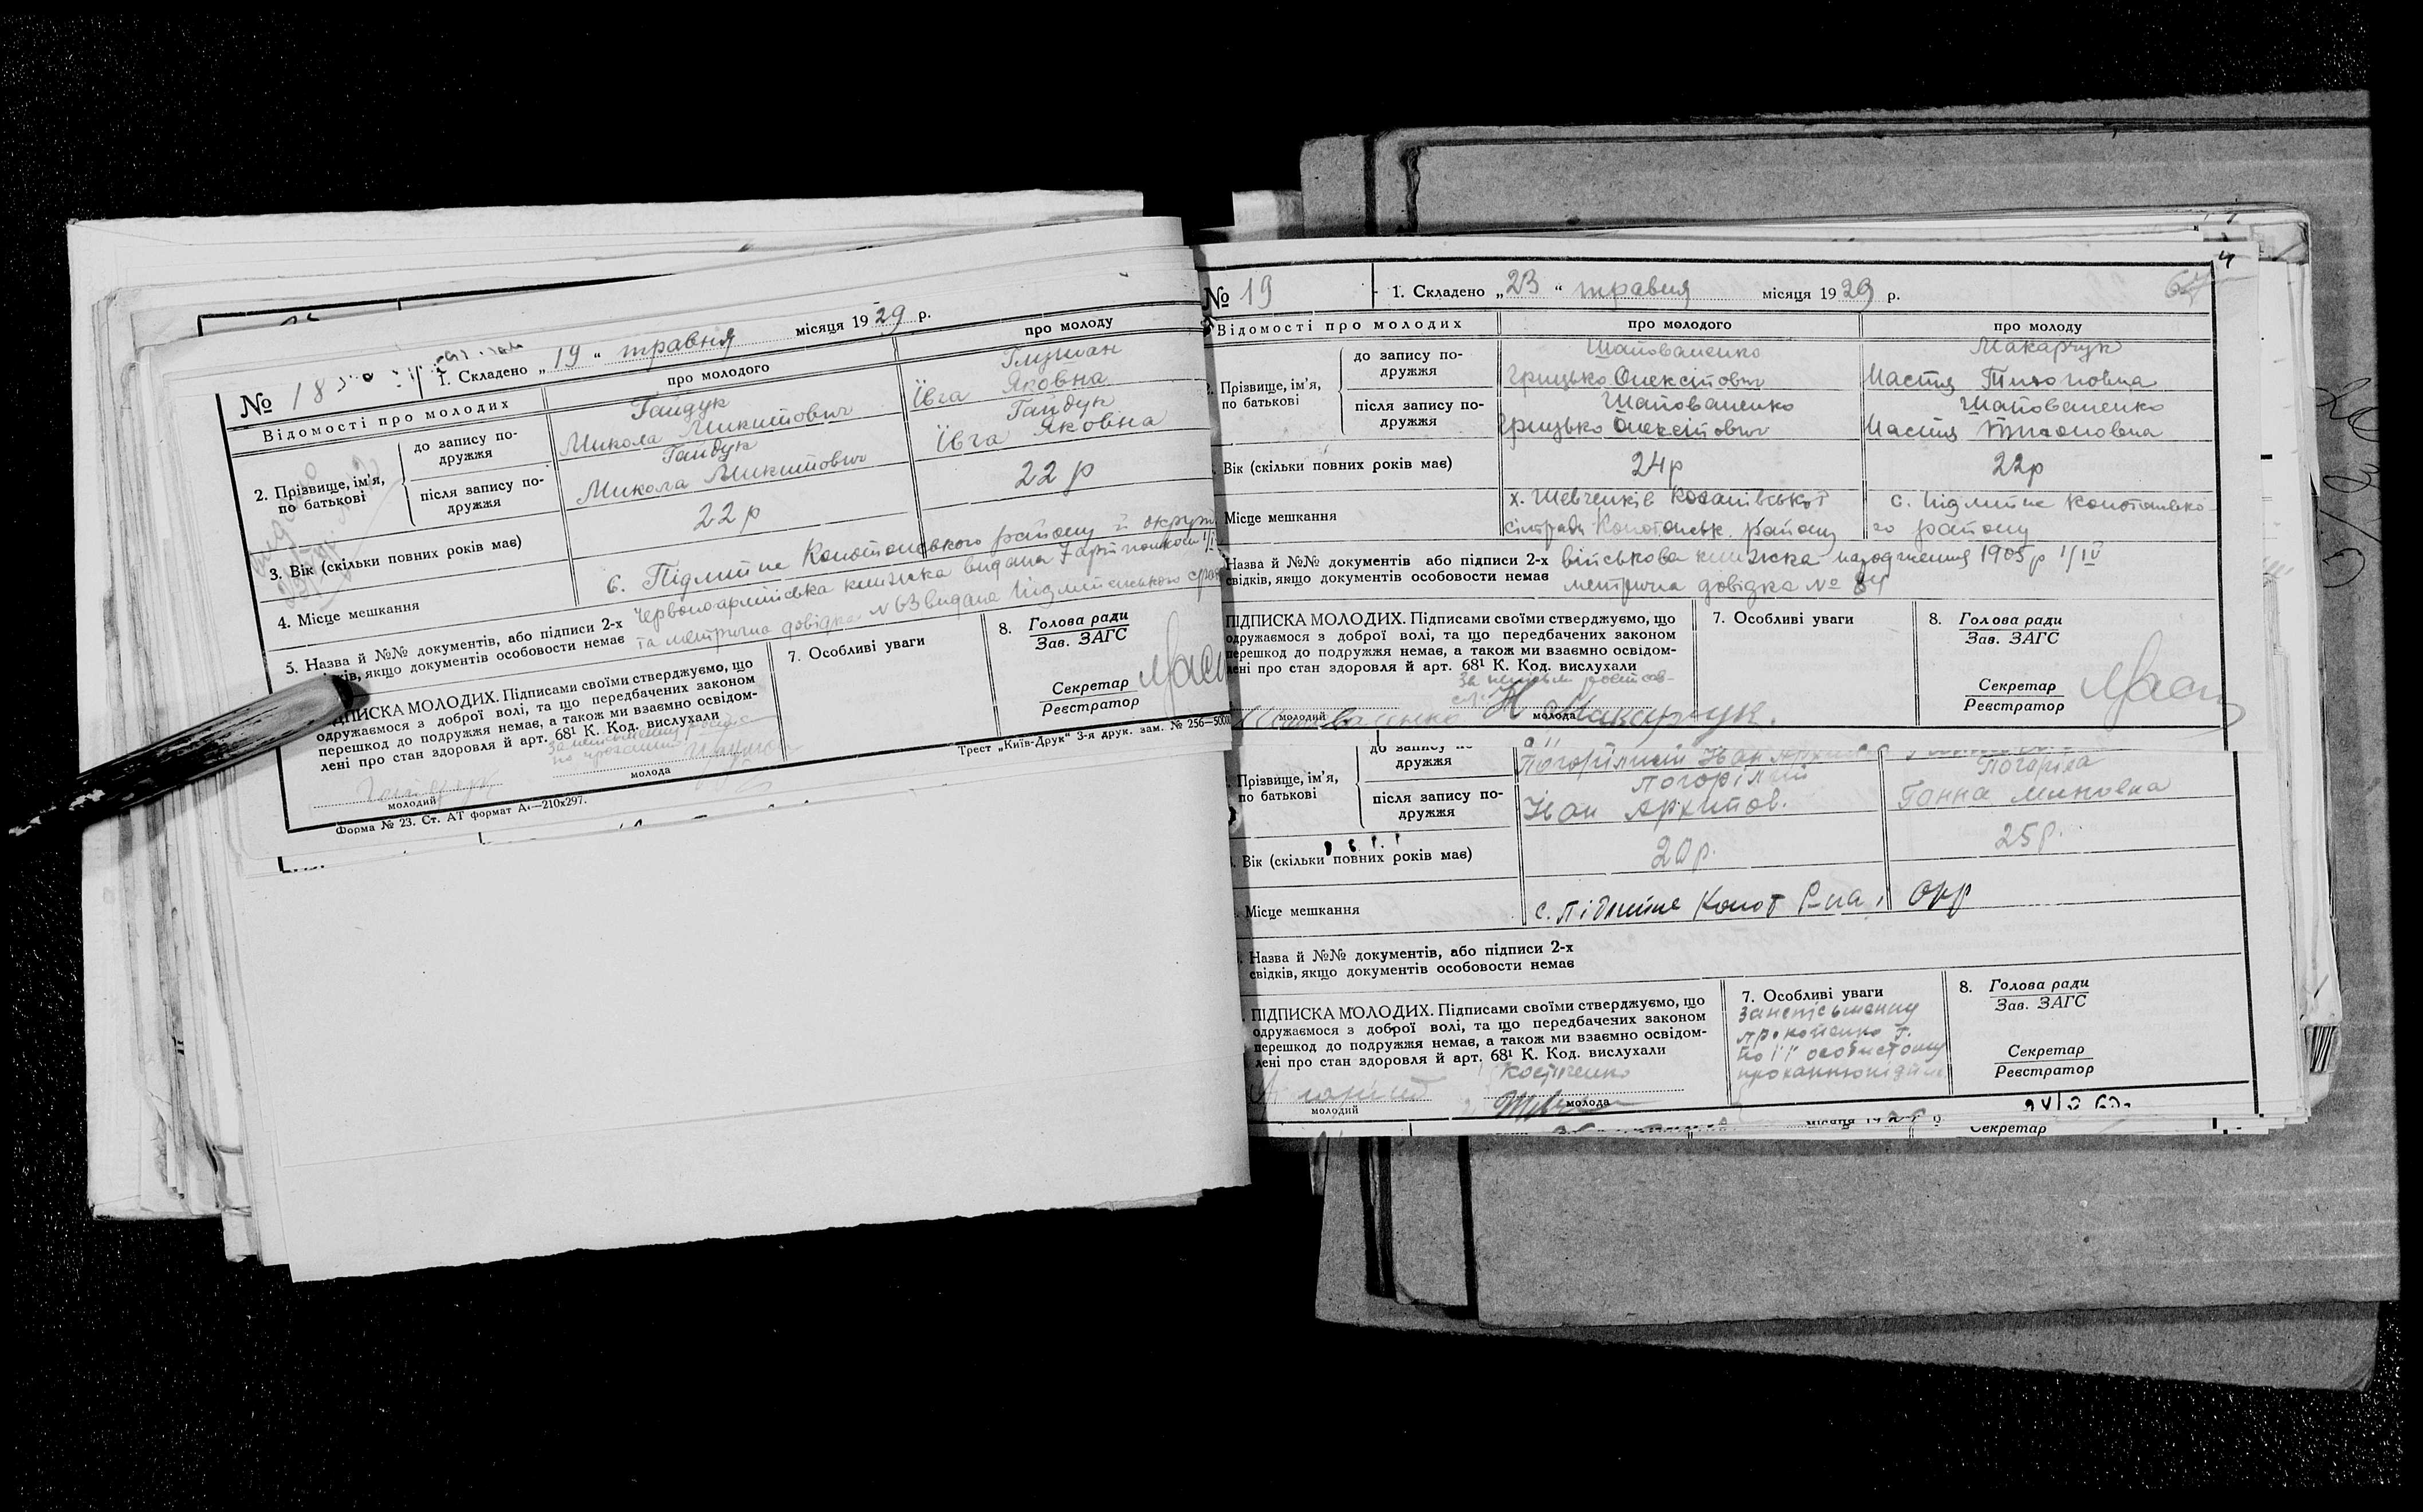 № 18
1. Складено „19“ травня місяця 1929 р.
Відомості про молодих
про молодого
про молоду
2. Прізвище, ім'я, по батькові
до запису по-
дружжя
Гайдук
Микола Микитович
Глушан
Ївга Яковна
після запису по-
дружжя
Гайдук
Микола Микитович
Гайдук
Ївга Яковна
3. Вік (скільки повних років має)
22 р
22 р
4. Місце мешкання
с. Підлипне Конотопського району й округи
5. Назва й №№ документів, або підписи 2-х
свідків, якщо документів особовости немає
Червоноармійська книжка видана 7 арт полком
та метрична довідка N 63 видана Підлипенською
ПІДПИСКА МОЛОДИХ. Підписами своїми стверджуємо, що
одружаємося з доброї волі, та що передбачених законом
перешкод до подружжя немає, а також ми взаємно освідом-
лені про стан здоровля й арт. 68¹ К. Код. вислухали
Гайдук
молодий
молода
7. Особливі уваги
8. Голова ради
Зав. ЗАГС
Секретар
Реєстратор
Форма № 23. Ст. АТ формат А₄—210х297.
Трест „Київ-Друк“ 3-я друк. зам. № 256—5000
№ 19
1. Складено „23“ травня місяця 1929 р.
Відомості про молодих
про молодого
про молоду
Прізвище, ім'я,
по батькові
до запису по-
дружжя
Шаповаленко
Грицько Олексійович
Макарчук
Настя Тихоновна
після запису по-
дружжя
Шаповаленко
Грицько Олексійович
Шаповаленко
Настя Тихоновна
Вік (скільки повних років має)
24р
22р
Місце мешкання
х. Шевченків
сільради Конотопськ. району
с. Підлипне Конотопсько-
го району
Назва й №№ документів або підписи 2-х
свідків, якщо документів особовости немає
військова книжка народження 1905 р 1/IV
метрична довідка № 84
ПІДПИСКА МОЛОДИХ. Підписами своїми стверджуємо, що
одружаємося з доброї волі, та що передбачених законом
перешкод до подружжя немає, а також ми взаємно освідом-
лені про стан здоровля й арт. 68¹ К. Код. вислухали
Шаповаленко
молодий
Н Макарчук.
молода
7. Особливі уваги
8. Голова ради
Зав. ЗАГС
Секретар
Реєстратор
Прізвище, ім'я,
по батькові
до запису по-
дружжя
Погорілий Іван
після запису по-
дружжя
Погорілий
Іван Архипов.
Погоріла
Ганна Миновна
Вік (скільки повних років має)
20р.
25р.
Місце мешкання
с. Підлипне Конот Р-на, Окр
Назва й №№ документів, або підписи 2-х
свідків, якщо документів особовости немає
ПІДПИСКА МОЛОДИХ. Підписами своїми стверджуємо, що
одружаємося з доброї волі, та що передбачених законом
перешкод до подружжя немає, а також ми взаємно освідом-
лені про стан здоровля й арт. 68¹ К. Код. вислухали
молодий
молода
7. Особливі уваги
За неписьменну
Прокопенко Г.
по її особистому
8. Голова ради
Зав. ЗАГС
Секретар
Реєстратор
Секретар